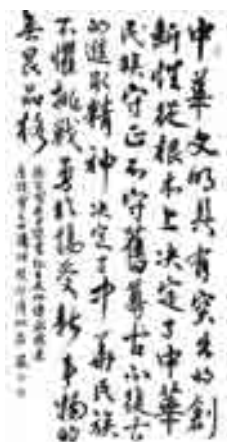 中華文明具有突出的創
新性從根本上決定了中華
民族守正不守舊尊古不復古
的進取精神決定了中華民族
不懼挑戰勇於接受新事物的
無畏品格